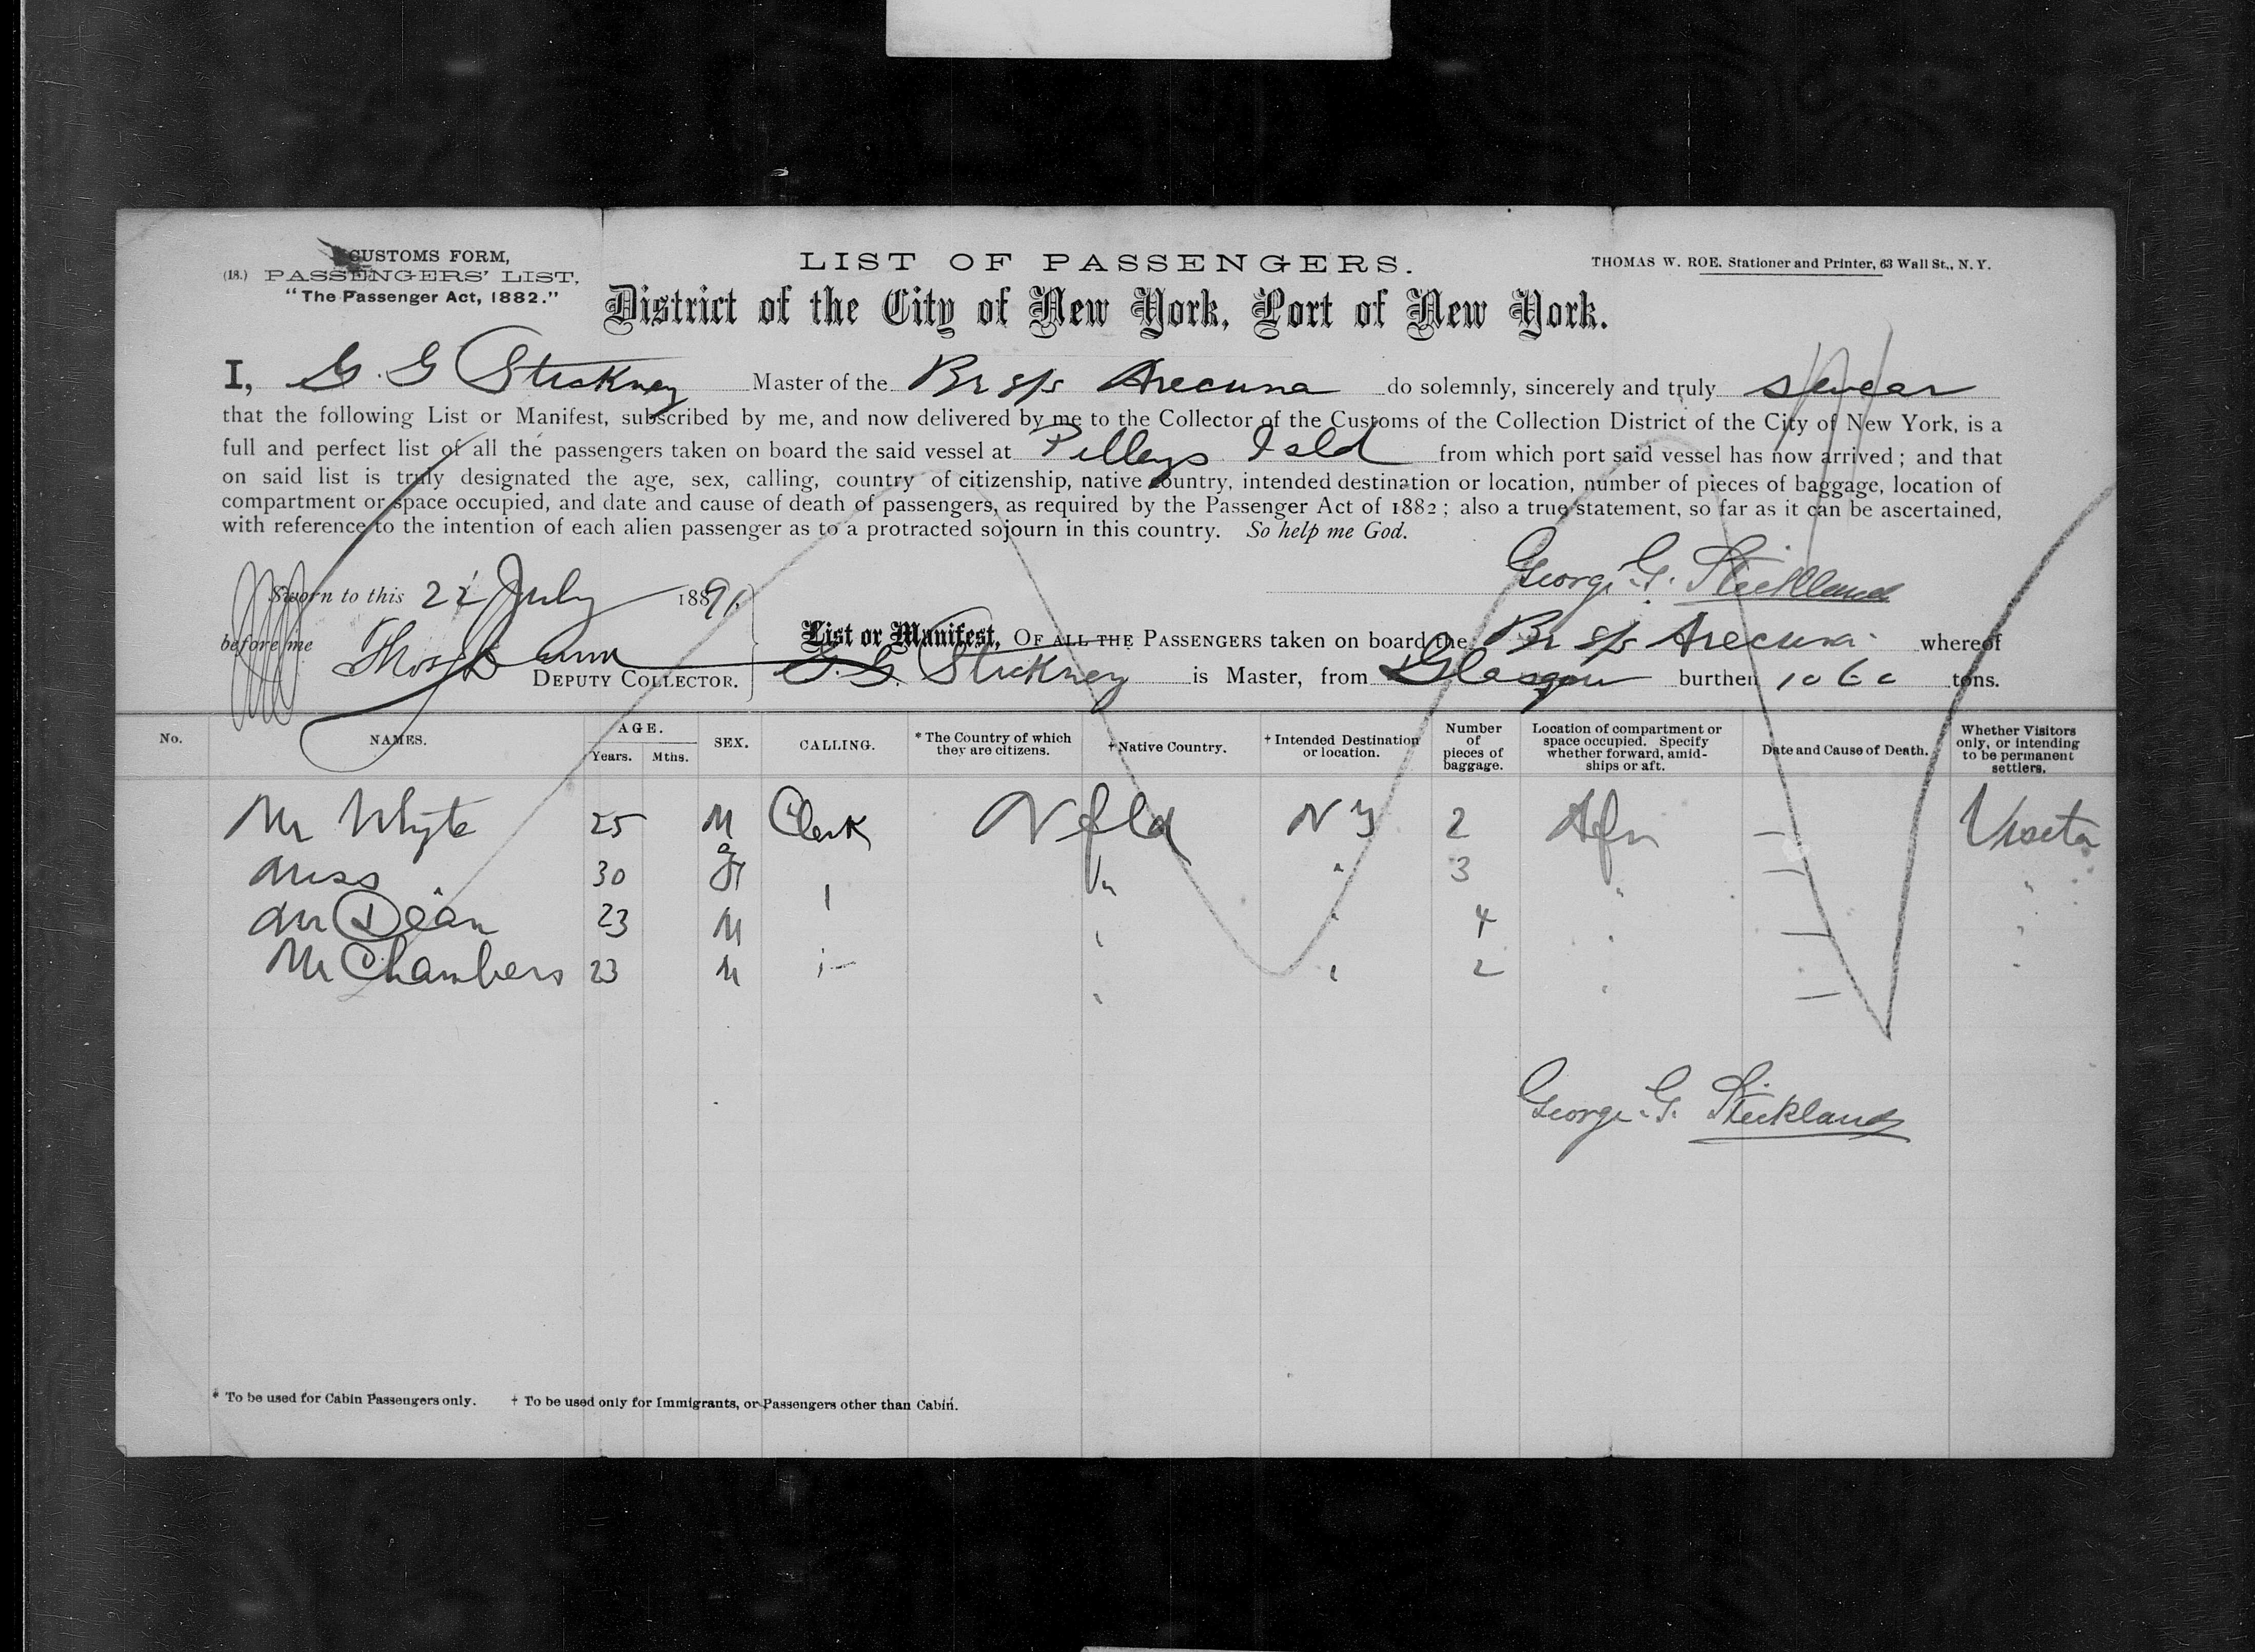 CUSTOMS FORM,
(18.) PASSENGERS' LIST.
"The Passenger Act, 1882."
LIST OF PASSENGERS.
THOMAS W. ROE. Stationer and Printer, 63 Wall St., N. Y.
District of the City of New York, Port of New York.
I, G. G Stickney Master of the Br s/s Arecuna do solemnly, sincerely and truly swear
that the following List or Manifest, subscribed by me, and now delivered by me to the Collector of the Customs of the Collection District of the City of New York, is a
full and perfect list of all the passengers taken on board the said vessel at Pilleys Isld from which port said vessel has now arrived; and that
on said list is truly designated the age, sex, calling, country of citizenship, native country, intended destination or location, number of pieces of baggage, location of
compartment or space occupied, and date and cause of death of passengers, as required by the Passenger Act of 1882; also a true statement, so far as it can be ascertained,
with reference to the intention of each alien passenger as to a protracted sojourn in this country. So help me God.
George G. Strickland
Sworn to this 22 July 1891.
before me Thos
DEPUTY COLLECTOR.
List or Manifest, OF ALL THE PASSENGERS taken on board the Br s/s Arecuna whereof
G. G. Stickney is Master, from Glasgow burthen 1060 tons.
No. NAMES. AGE. Years. Mths. SEX. CALLING. * The Country of which they are citizens. † Native Country. † Intended Destination or location. Number of pieces of baggage. Location of compartment or space occupied. Specify whether forward, amidships or aft. Date and Cause of Death. Whether Visitors only, or intending to be permanent settlers.
Mr Whyte 25 M Clerk Nfld NY 2 Aft — Visitor
Miss 30 F " " 3 " — "
Mr Dean 23 M " " 4 " — "
Mr Chambers 23 M " " " 2 " — "
George G. Strickland
* To be used for Cabin Passengers only. † To be used only for Immigrants, or Passengers other than Cabin.